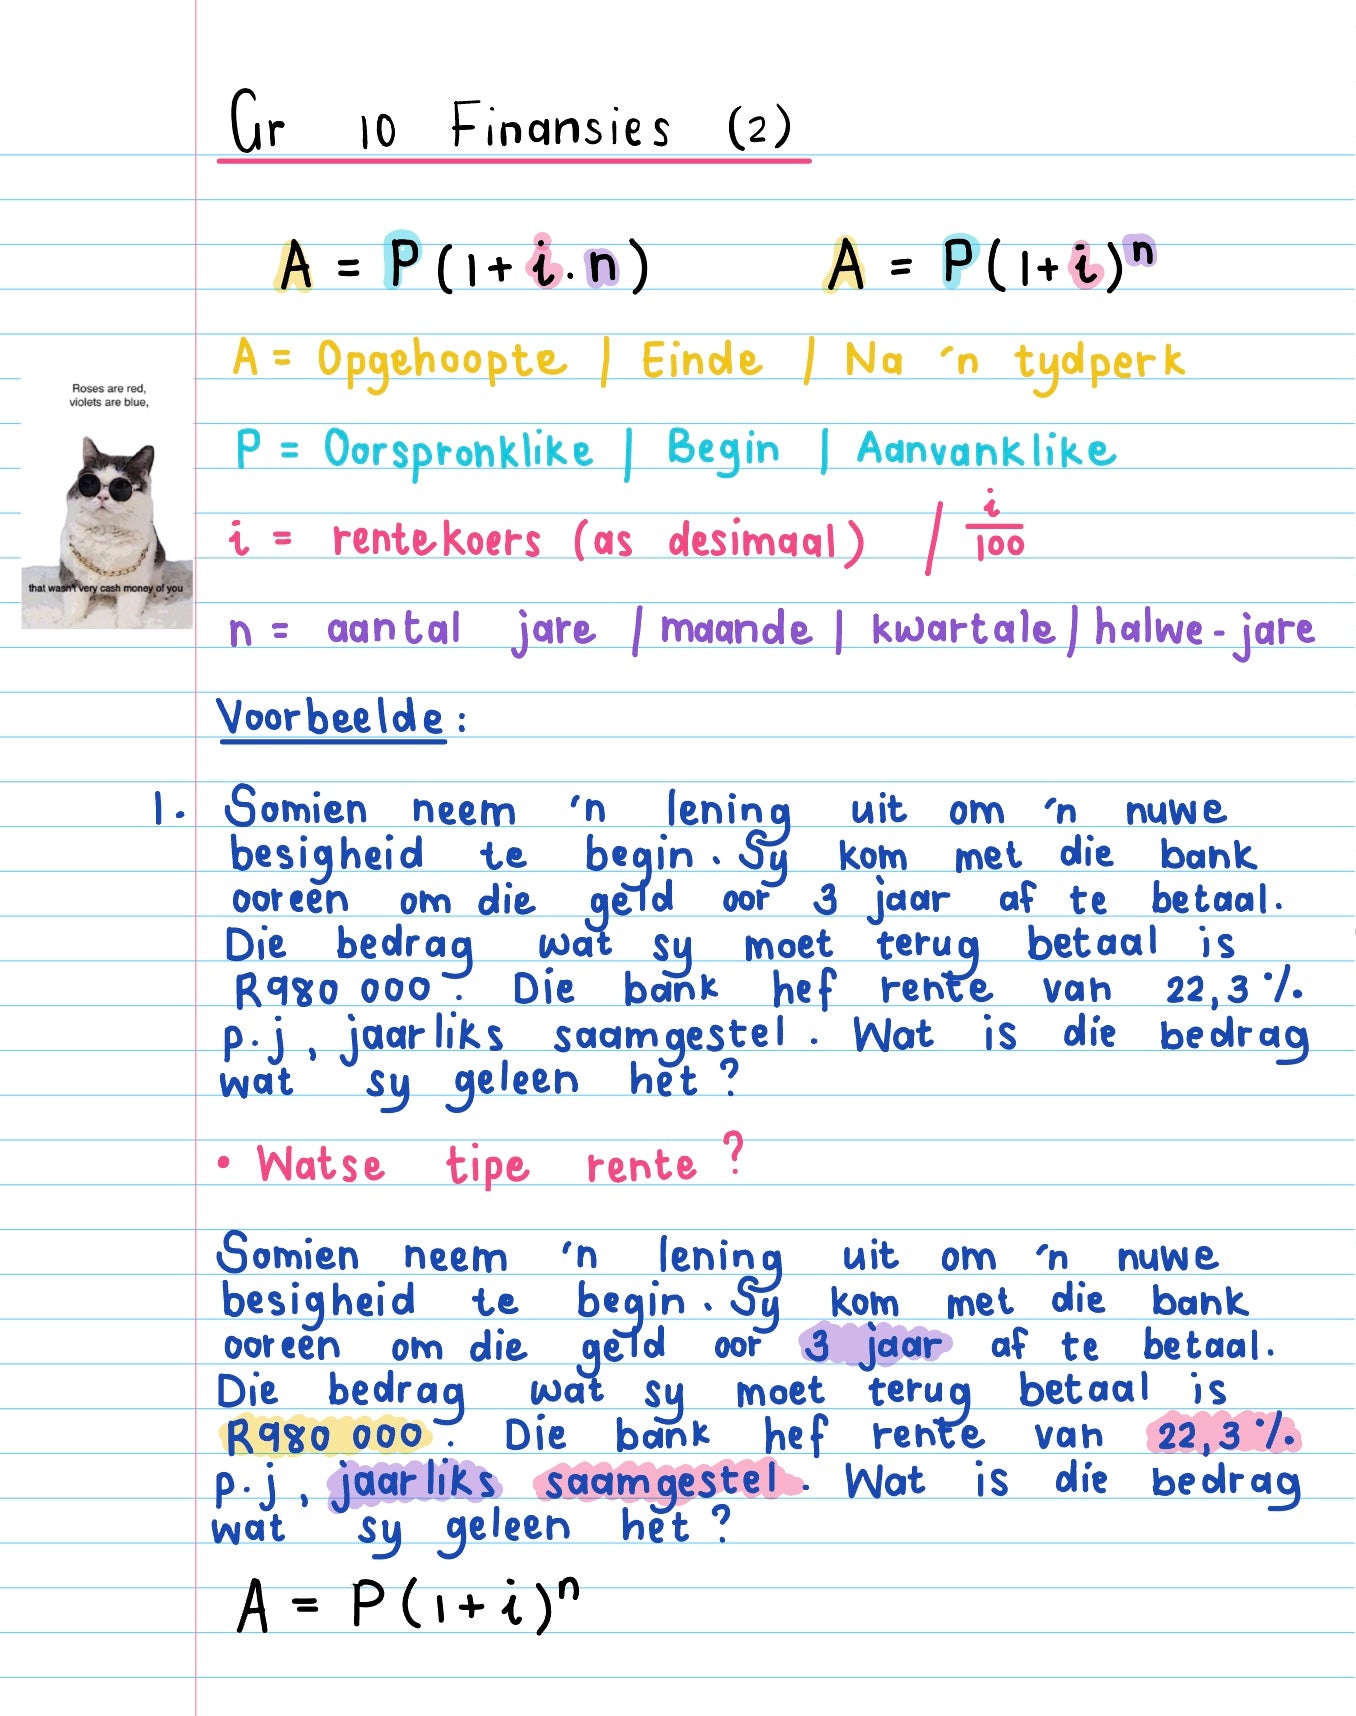 Gr 10 Finansies (2)
A = P(1+i.n) A = P(1+i)ⁿ
A = Opgehoopte | Einde / Na 'n tydperk
Roses are red,
violets are blue,
P = Oorspronklike | Begin | Aanvanklike
i = rentekoers (as desimaal) / i/100
that wasn't very cash money of you
n = aantal jare / maande | kwartale / halwe-jare
Voorbeelde:
1. Somien neem 'n lening uit om 'n nuwe
besigheid te begin. Sy kom met die bank
ooreen om die geld oor 3 jaar af te betaal.
Die bedrag wat sy moet terug betaal is
R980 000. Die bank hef rente van 22,3%
p.j, jaarliks saamgestel. Wat is die bedrag
wat sy geleen het?
• Watse tipe rente?
Somien neem 'n lening uit om 'n nuwe
besigheid te begin. Sy kom met die bank
ooreen om die geld oor 3 jaar af te betaal.
Die bedrag wat sy moet terug betaal is
R980 000. Die bank hef rente van 22,3%
p.j, jaarliks saamgestel. Wat is die bedrag
wat sy geleen het?
A = P(1+i)ⁿ